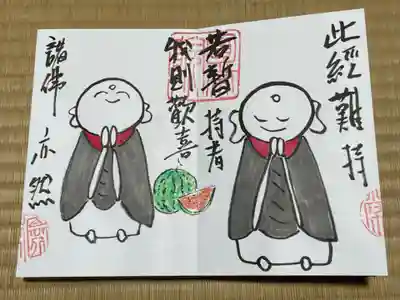 此経難持
若暫持者
我則歓喜
諸佛亦然